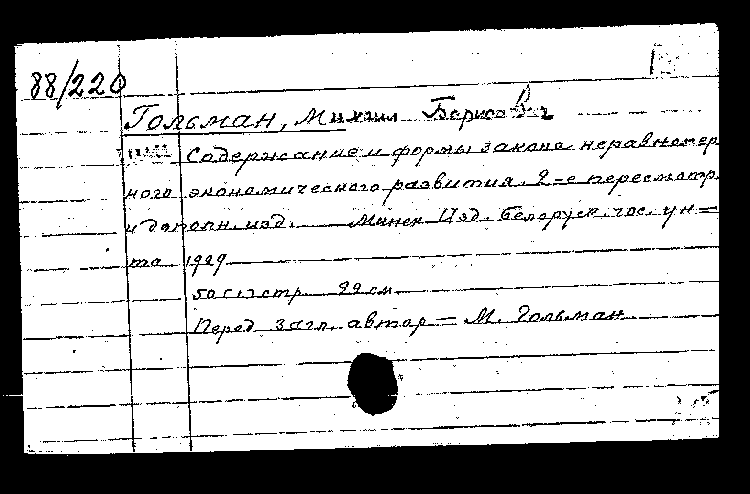 88/220
Гольман, Михаил Борисович
Содержание и формы закона неравномер
ного экономического развития. 2-е пересмотр.
и дополн. изд. Минск Изд. Белорусск. гос. ун-
та 1929
стр. 22 см
Перед загл. автор — М. Гольман